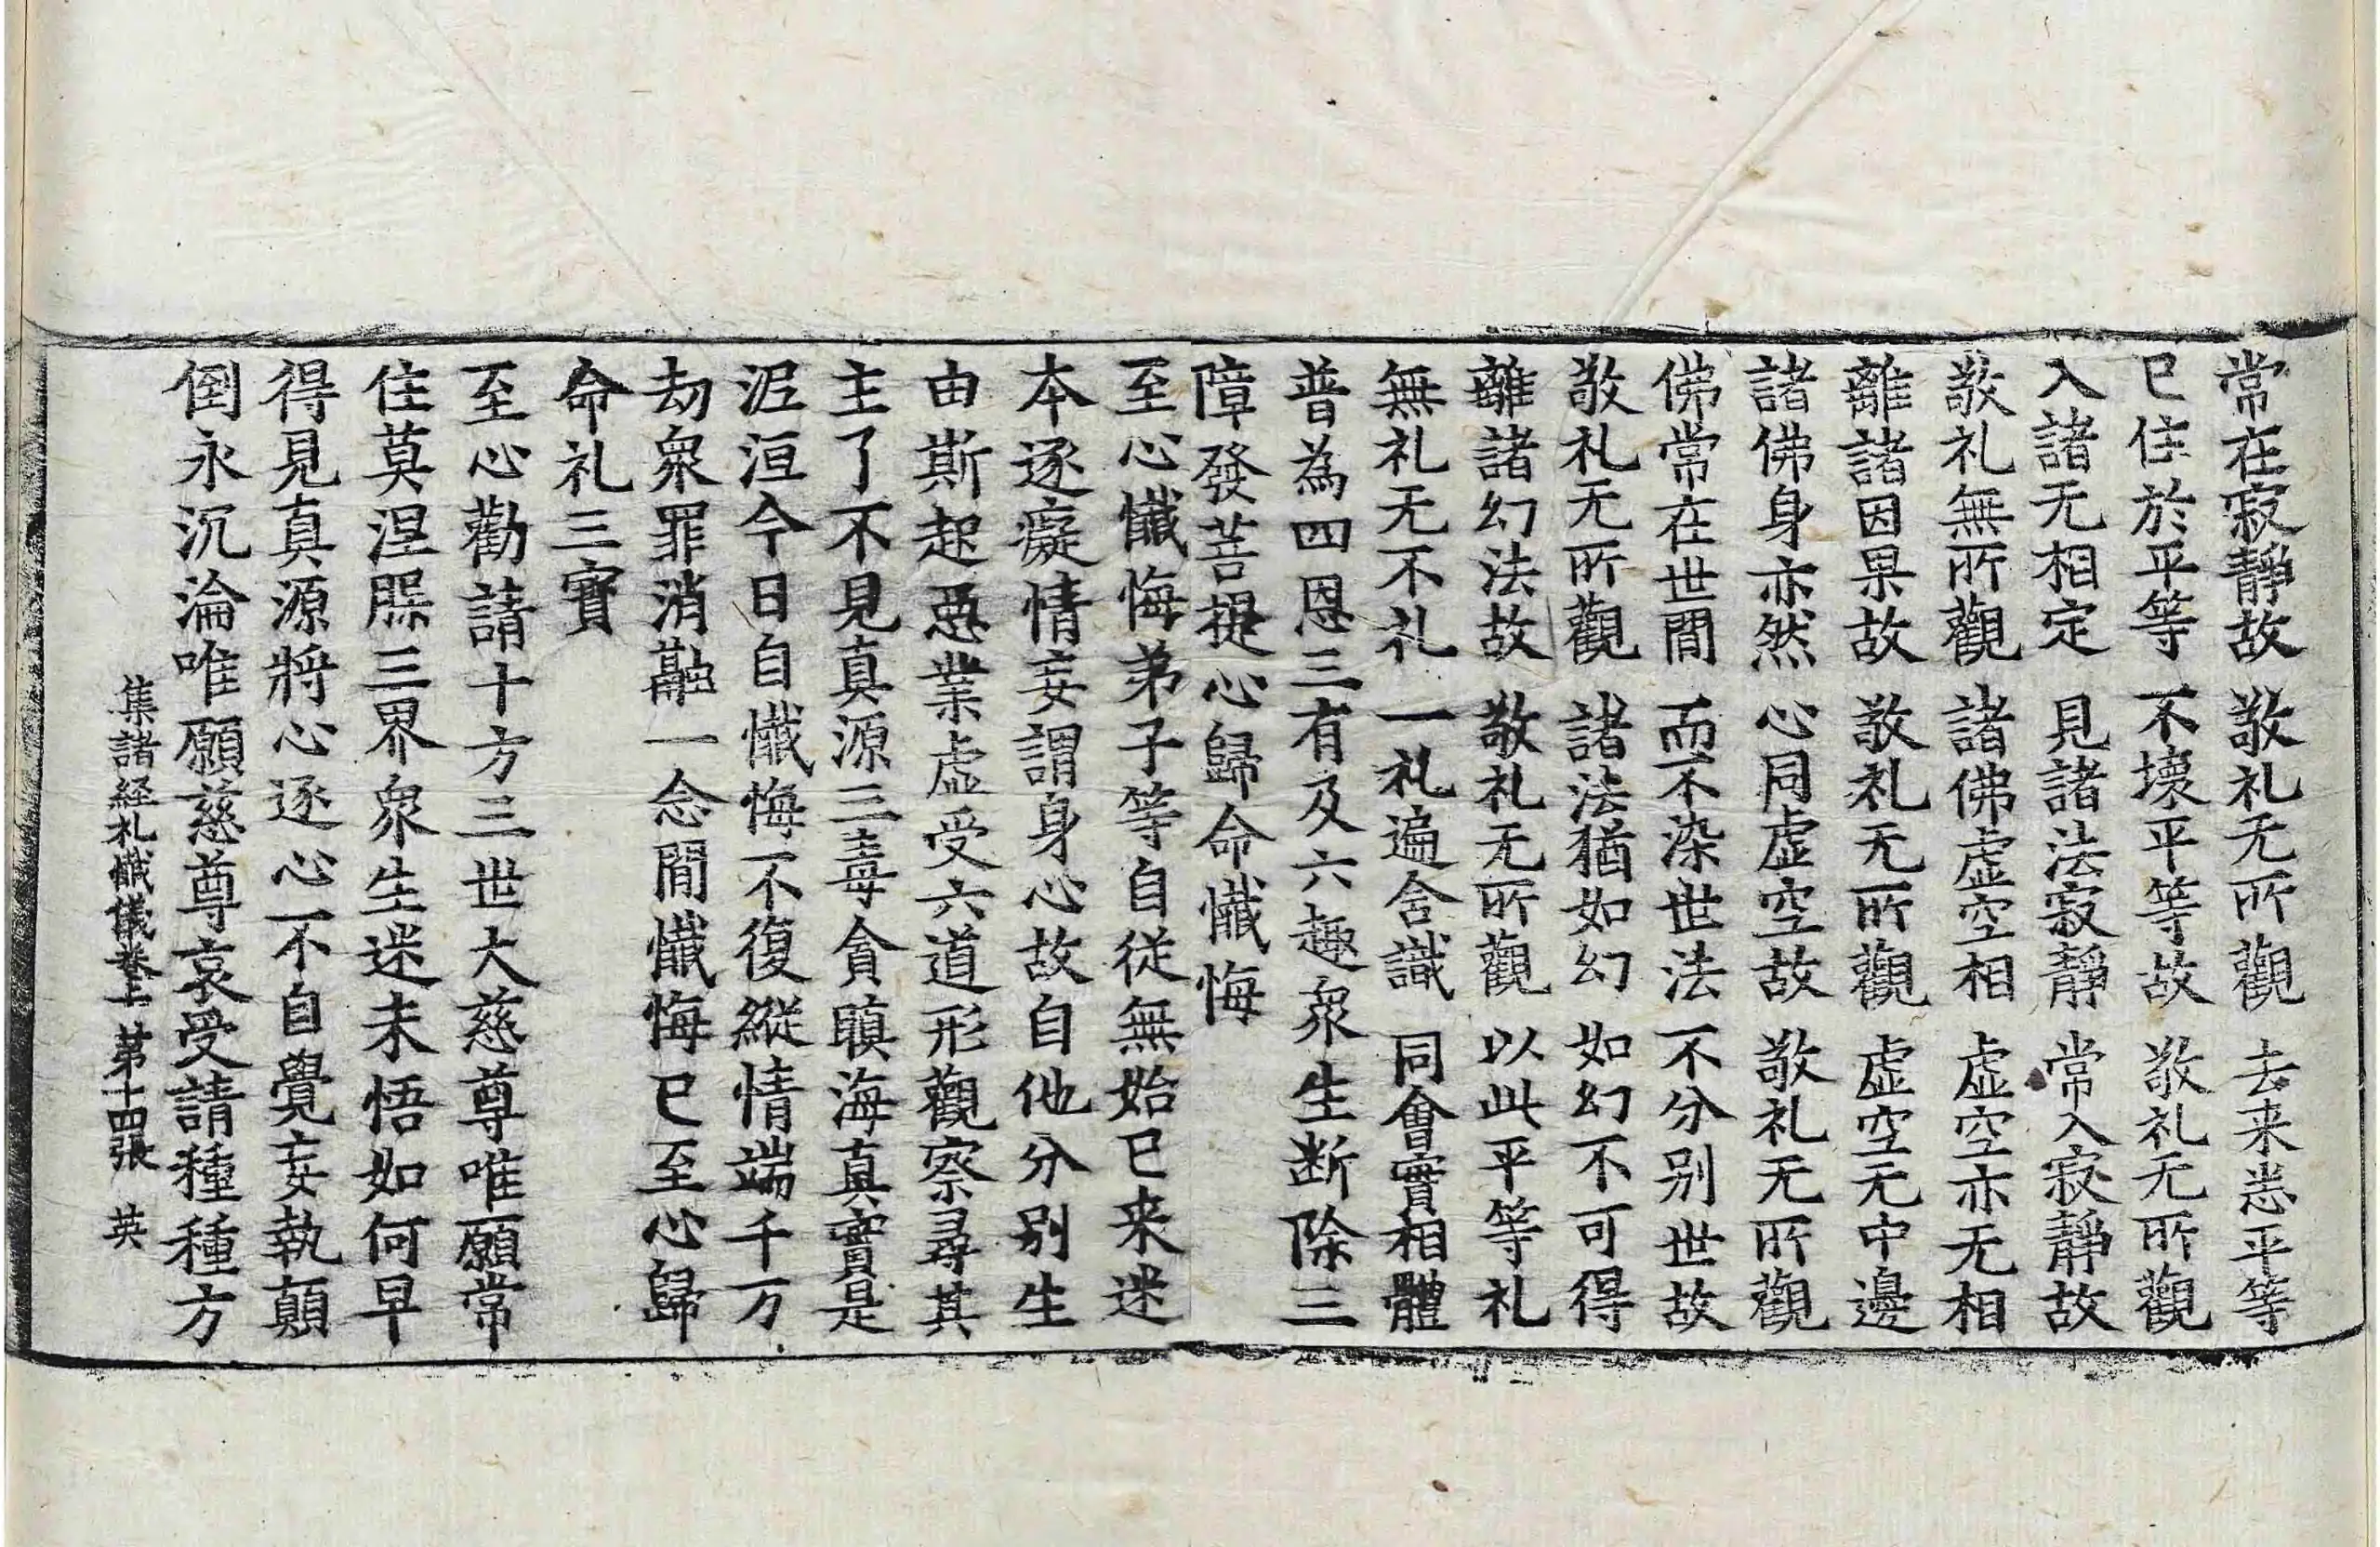 常在寂靜故 敬礼无所觀 去来悉平等
已住於平等 不壞平等故 敬礼无所觀
入諸无相定 見諸法寂靜 常入寂靜故
敬礼無所觀 諸佛虛空相 虛空亦无相
離諸因果故 敬礼无所觀 虛空无中邊
諸佛身亦然 心同虛空故 敬礼无所觀
佛常在世間 而不染世法 不分别世故
敬礼无所觀 諸法猶如幻 如幻不可得
離諸幻法故 敬礼无所觀 以此平等礼
無礼无不礼 一礼遍含識 同會實相體
普為四恩三有及六趣衆生断除三
障發菩提心歸命懺悔
至心懺悔弟子等自従無始已来迷
本逐癡情妄謂身心故自他分别生
由斯起惡業虛受六道形觀察尋其
主了不見真源三毒貪瞋海真實是
泥洹今日自懺悔不復縱情端千万
劫衆罪消融一念間懺悔已至心歸
命礼三寳
至心勸請十方三世大慈尊唯願常
住莫涅槃三界衆生迷未悟如何早
得見真源將心逐心不自覺妄執顛
倒永沉淪唯願慈尊哀受請種種方
集諸経礼懺儀卷上 第十四張 英